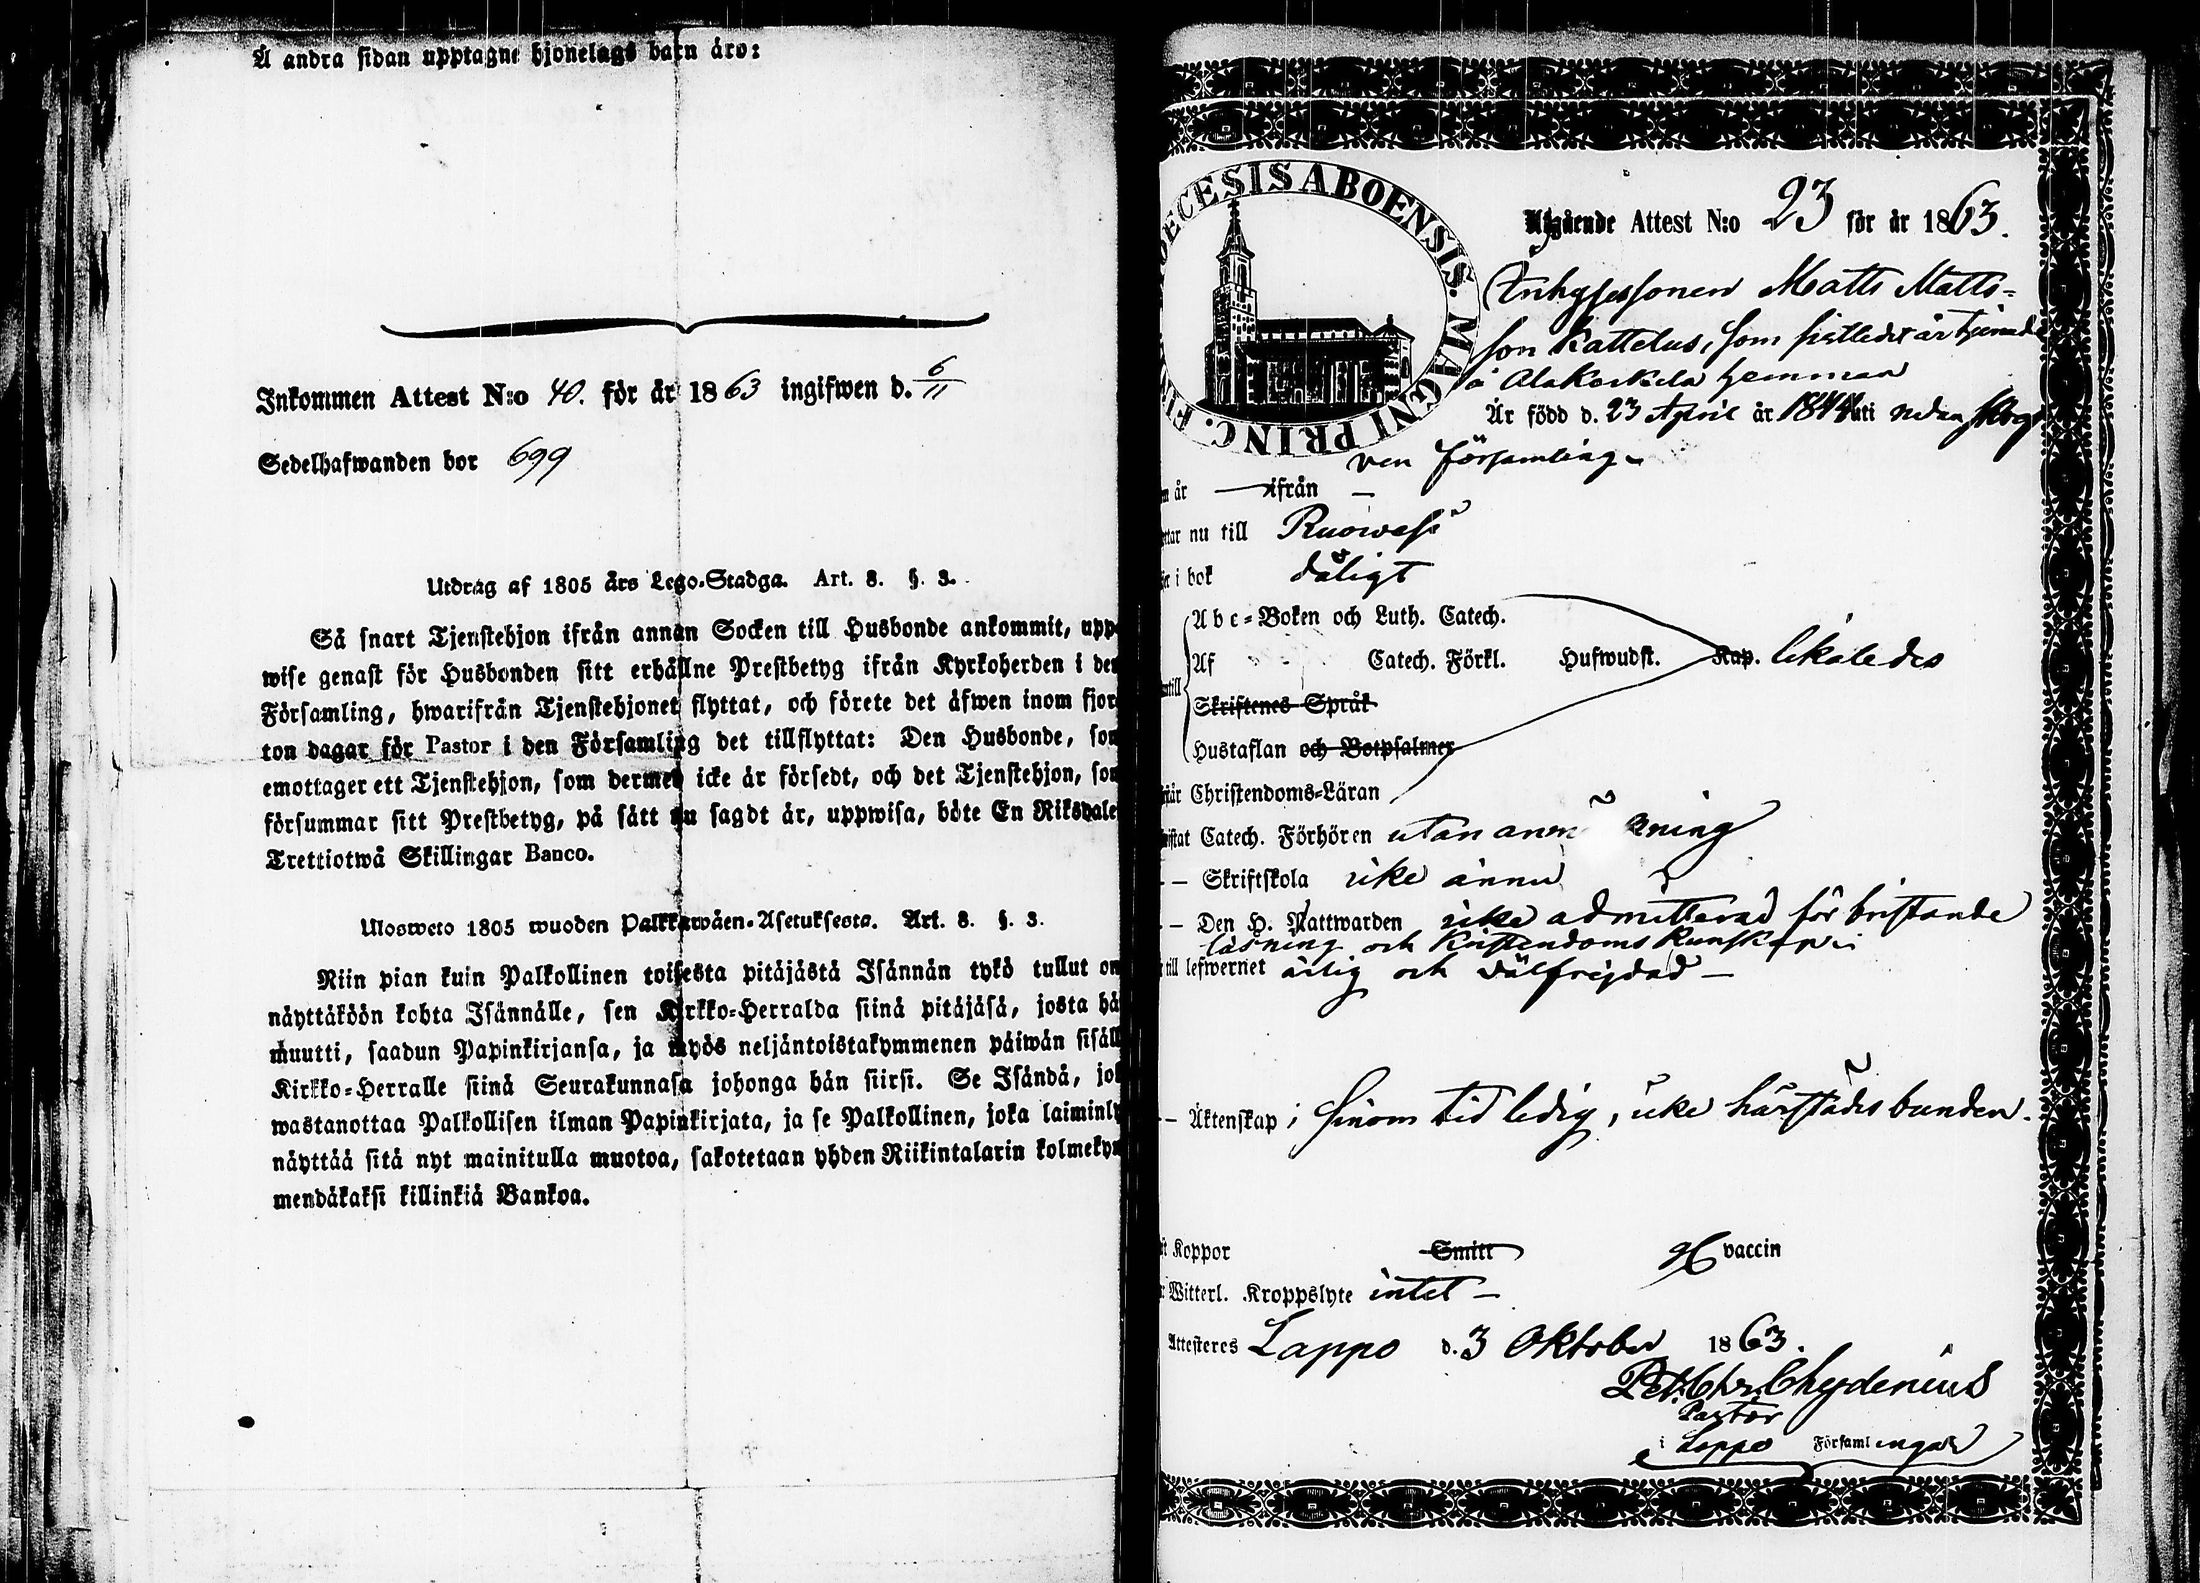 Å andra sidan upptagne hjonelags barn äro:
Inkommen Attest N:o 40. för år 1863 ingifwen d. 6/11
Sedelhafwanden bor 699
Utdrag af 1805 års Lego-Stadga. Art. 8. §. 3.
Så snart Tjenstehjon ifrån annan Socken till Husbonde ankommit, upp-
wise genast för Husbonden sitt erhållne Prestbetyg ifrån Kyrkoherden i den
Församling, hwarifrån Tjenstehjonet flyttat, och förete det äfwen inom fjor-
ton dagar för Pastor i den Församling det tillflyttat: Den Husbonde, som
emottager ett Tjenstehjon, som dermed icke är försedt, och det Tjenstehjon, som
försummar sitt Prestbetyg, på sätt nu sagdt är, uppwisa, böte En Riksdaler
Trettiotwå Skillingar Banco.
Ulosweto 1805 wuoden Palkkawäen-Asetuksesta. Art. 8. §. 3.
Niin pian kuin Palkollinen toisesta pitäjästä Isännän tykö tullut on
näyttäköön kohta Isännälle, sen Kirkko-Herralda siinä pitäjäsä, josta hä
muutti, saadun Papinkirjansa, ja myös neljäntoistakymmenen päiwän sisäll
Kirkko-Herralle siinä Seurakunnasa johonga hän siirsi. Se Isändä, jok
wastanottaa Palkollisen ilman Papinkirjata, ja se Palkollinen, joka laiminly
näyttää sitä nyt mainitulla muotoa, sakotetaan yhden Riikintalarin kolmekym
mendäkaksi killinkiä Bankoa.
DECESIS ABOENSIS. MAGNI PRINC. FIN
Utgående Attest N:o 23 för år 1863.
Matts Matts-
son Kattelus, som sistledet år tjenade
å Alakoskela hemman
Är född d. 23 April år 1844 uti nedanskrif
ven församling.
n år — ifrån —
ttar nu till Ruowesi
er i bok dåligt
Abc-Boken och Luth. Catech.
Af Catech. Förkl. Hufwudst. Kap. likaledes
antill
Skriftenes Språk
Hustaflan och Botpsalmer
står Christendoms-Läran
wistat Catech. Förhören utan anm kning
— Skriftskola icke ännu
— Den H. Nattwarden icke admitterad för bristande
läsning och Kristendoms kunskap;
till lefwernet ärlig och välfrejdad —
— Äktenskap; sinom tid ledig, icke härstädes bunden.
t Koppor Smitt vaccin
r Witterl. Kroppslyte intet —
Attesteres Lappo d. 3 Oktober 1863.
Pet. Chr. Chydenius
Pastor
i Lappo Församlingar